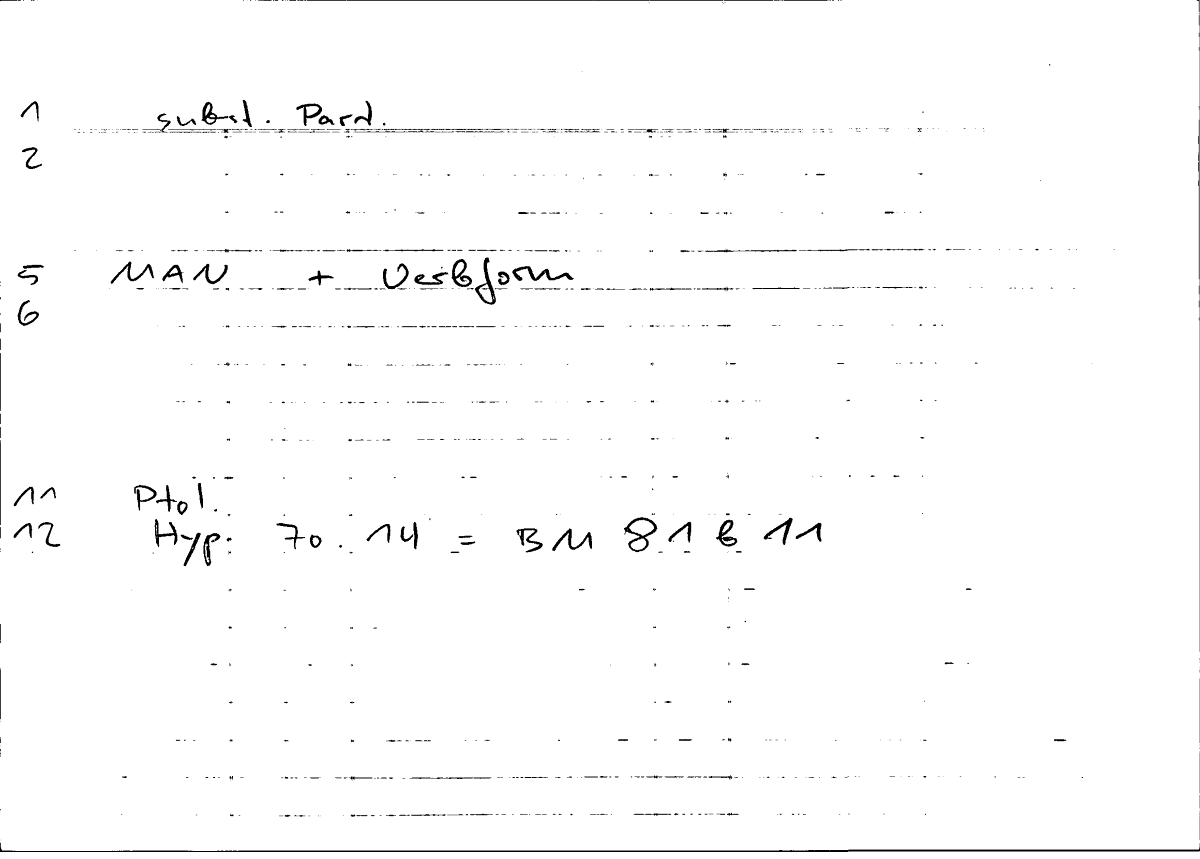 1 subst. Part.
2
5 MAN + Verbform
6
11 Ptol.
12 Hyp. 70.14 = BM 81 b 11